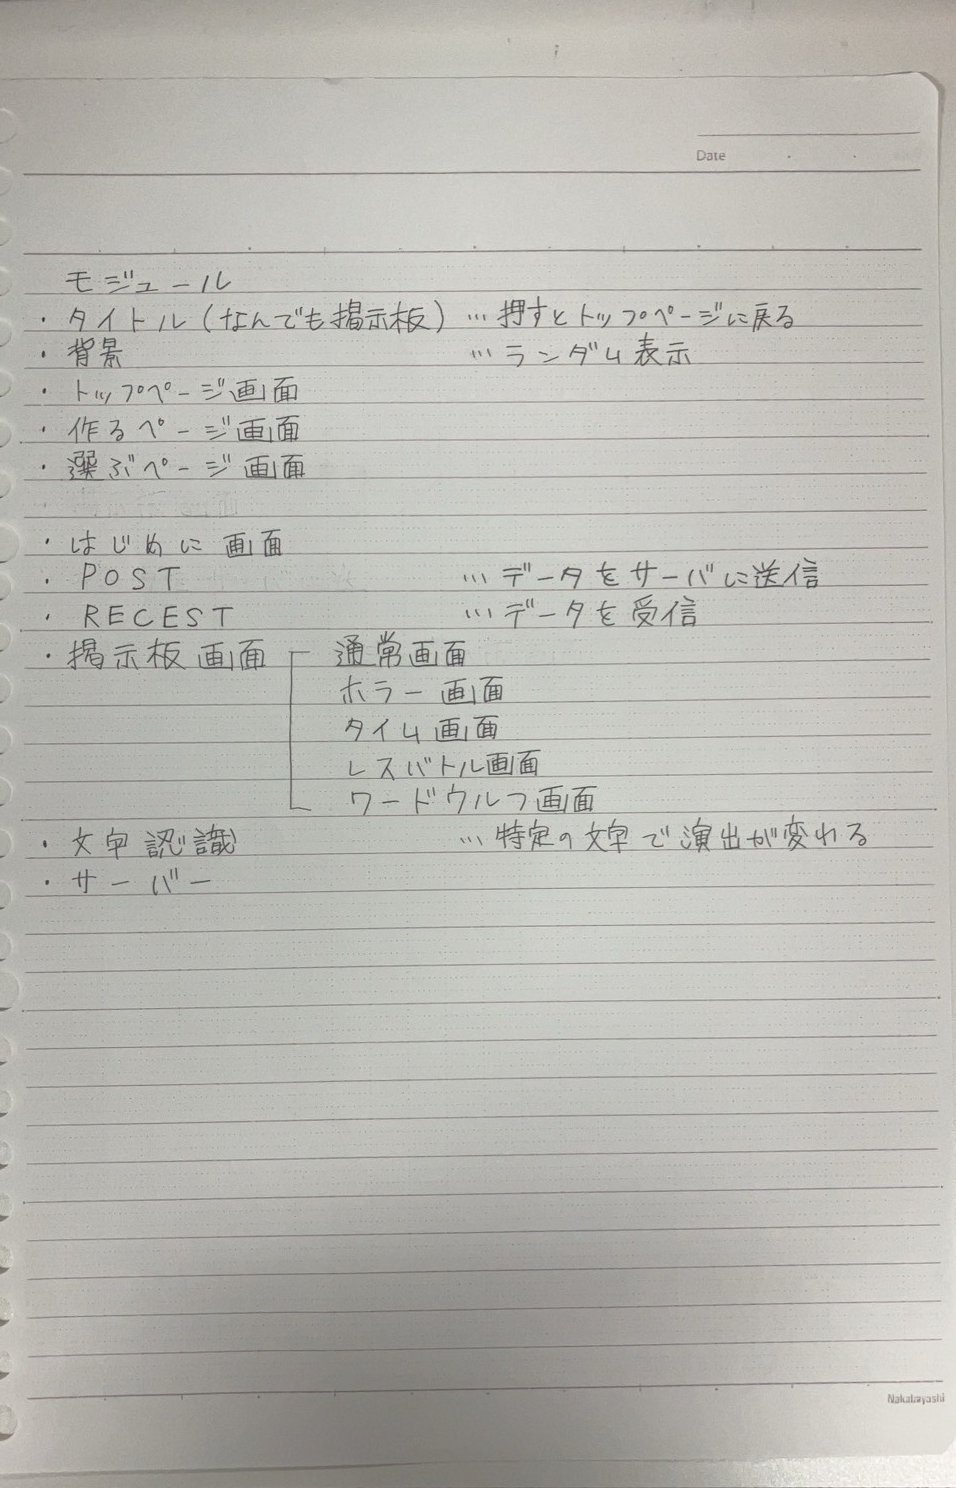 Date
モジュール
・タイトル(なんでも掲示板) … 押すとトップページに戻る
・背景 … ランダム表示
・トップページ画面
・作るページ画面
・選ぶページ画面
・はじめに画面
・POST … データをサーバに送信
・RECEST … データを受信
・掲示板画面 通常画面
ホラー画面
タイム画面
レスバトル画面
ワードウルフ画面
・文字認識 … 特定の文字で演出が変わる
・サーバー
Nakabayashi